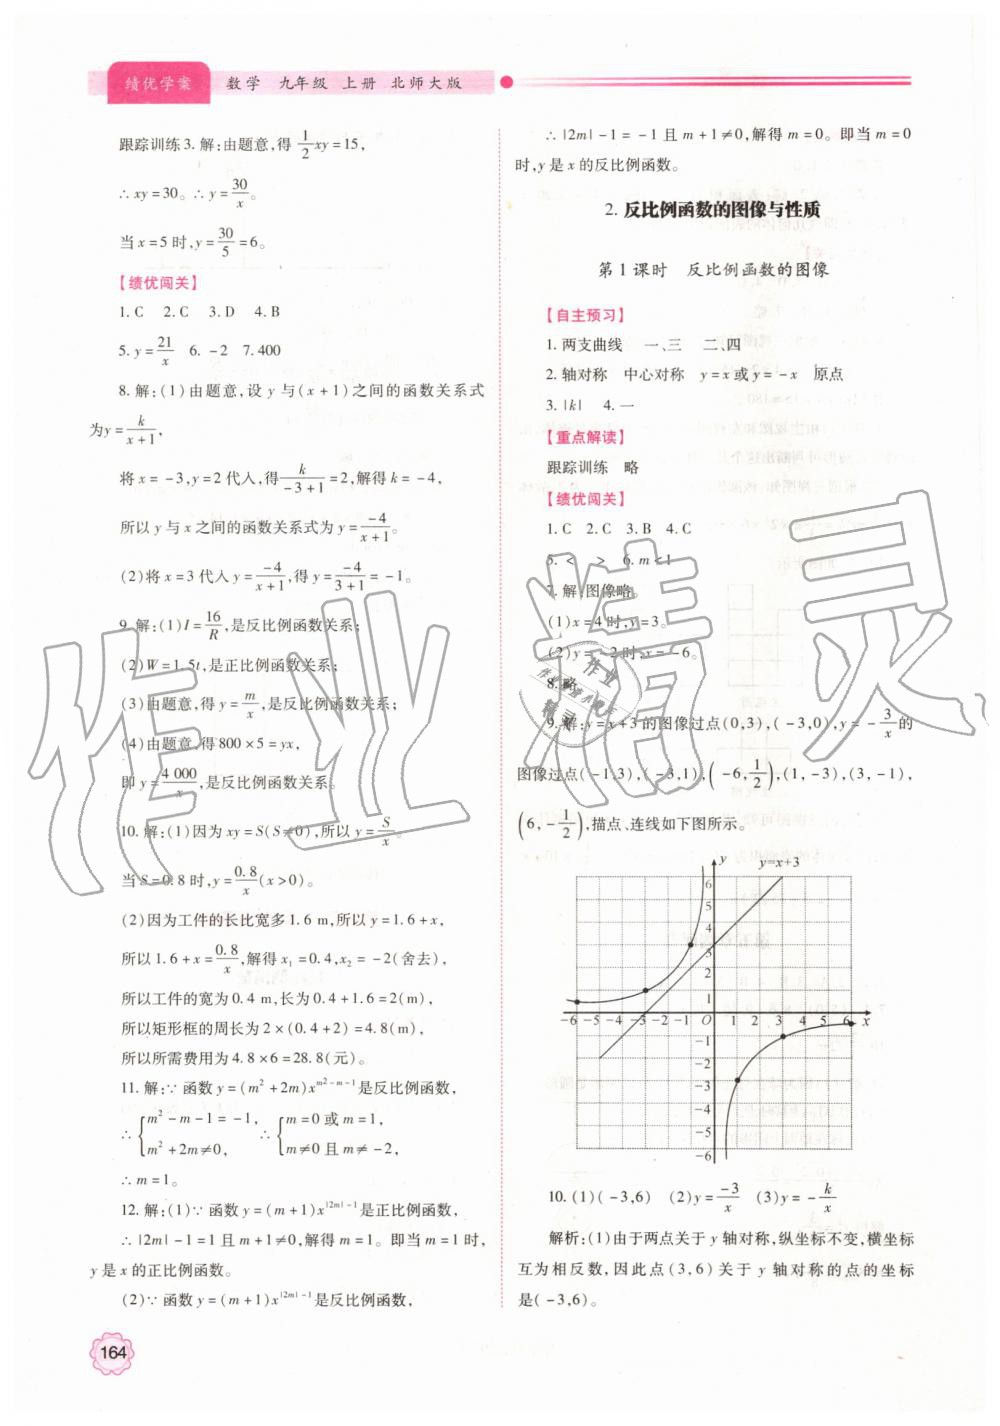 绩优学案 数学 九年级 上册 北师大版
跟踪训练3. 解:由题意,得 1/2 xy=15,
∴xy=30。∴y=30/x。
当x=5时,y=30/5=6。
【绩优闯关】
1. C 2. C 3. D 4. B
5. y=21/x 6. -2 7. 400
8. 解:(1)由题意,设y与(x+1)之间的函数关系式
为y=k/(x+1),
将x=-3,y=2代入,得k/(-3+1)=2,解得k=-4,
所以y与x之间的函数关系式为y=-4/(x+1)。
(2)将x=3代入y=-4/(x+1),得y=-4/(3+1)=-1。
9. 解:(1)I=16/R,是反比例函数关系;
(2)W=1.5t,是正比例函数关系;
(3)由题意,得y=m/x,是反比例函数关系;
(4)由题意,得800×5=yx,
即y=4 000/x,是反比例函数关系。
10. 解:(1)因为xy=S(S≠0),所以y=S/x。
当S=0.8时,y=0.8/x(x>0)。
(2)因为工件的长比宽多1.6 m,所以y=1.6+x,
所以1.6+x=0.8/x,解得x₁=0.4,x₂=-2(舍去),
所以工件的宽为0.4 m,长为0.4+1.6=2(m),
所以矩形框的周长为2×(0.4+2)=4.8(m),
所以所需费用为4.8×6=28.8(元)。
11. 解:∵函数y=(m²+2m)x^(m²-m-1)是反比例函数,
∴{m²-m-1=-1, ∴{m=0或m=1,
m²+2m≠0, m≠0且m≠-2,
∴m=1。
12. 解:(1)∵函数y=(m+1)x^(|2m|-1)是正比例函数,
∴|2m|-1=1且m+1≠0,解得m=1。即当m=1时,
y是x的正比例函数。
(2)∵函数y=(m+1)x^(|2m|-1)是反比例函数,
164
∴|2m|-1=-1且m+1≠0,解得m=0。即当m=0
时,y是x的反比例函数。
2. 反比例函数的图像与性质
第1课时 反比例函数的图像
【自主预习】
1. 两支曲线 一、三 二、四
2. 轴对称 中心对称 y=x或y=-x 原点
3. |k| 4. 一
【重点解读】
跟踪训练 略
【绩优闯关】
1. C 2. C 3. B 4. C
5. < > 6. m<1
7. 解:图像略。
(1)x=4时,y=3。
(2)y=-2时,x=-6。
8. 略
9. 解:y=x+3的图像过点(0,3),(-3,0),y=-3/x的
图像过点(-1,3),(-3,1),(-6,1/2),(1,-3),(3,-1),
(6,-1/2),描点、连线如下图所示。
y y=x+3
6
5
4
3
2
1
-6 -5 -4 -3 -2 -1 O 1 2 3 4 5 6 x
-1
-2
-3
-4
-5
-6
10. (1)(-3,6) (2)y=-3/x (3)y=-k/x
解析:(1)由于两点关于y轴对称,纵坐标不变,横坐标
互为相反数,因此点(3,6)关于y轴对称的点的坐标
是(-3,6)。
作业精灵